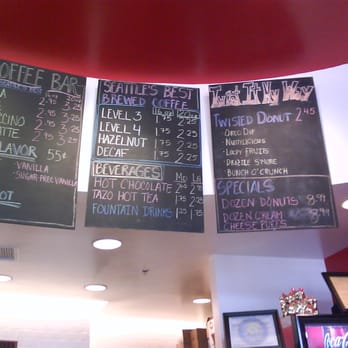 COFFEE BAR
2.95 3.25
2.45 3.25
CCINO 2.95 3.25
TTE 2.95 3.25
LAVOR 55¢
VANILLA
SUGAR-FREE VANILLA
OT
SEATTLE'S BEST
BREWED COFFEE
LEVEL 3 1.75 2.25
LEVEL 4 1.75 2.25
HAZELNUT 1.75 2.25
DECAF 1.75 2.25
BEVERAGES MD LG
HOT CHOCOLATE
TAZO HOT TEA 1.75 2.25
FOUNTAIN DRINKS 1.35 1.75
Twist It My Way
TWISTED DONUT 2.45
OREO DIP
NUTTILICIOUS
LOOPY FRUITS
PRETZLE S'MORE
BUNCH O' CRUNCH
SPECIALS
DOZEN DONUTS 8.99
DOZEN CREAM 8.99
CHEESE PUFFS
Coca-Cola